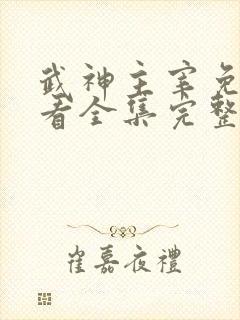 武神主宰免
看全集完整
崔嘉夜禮